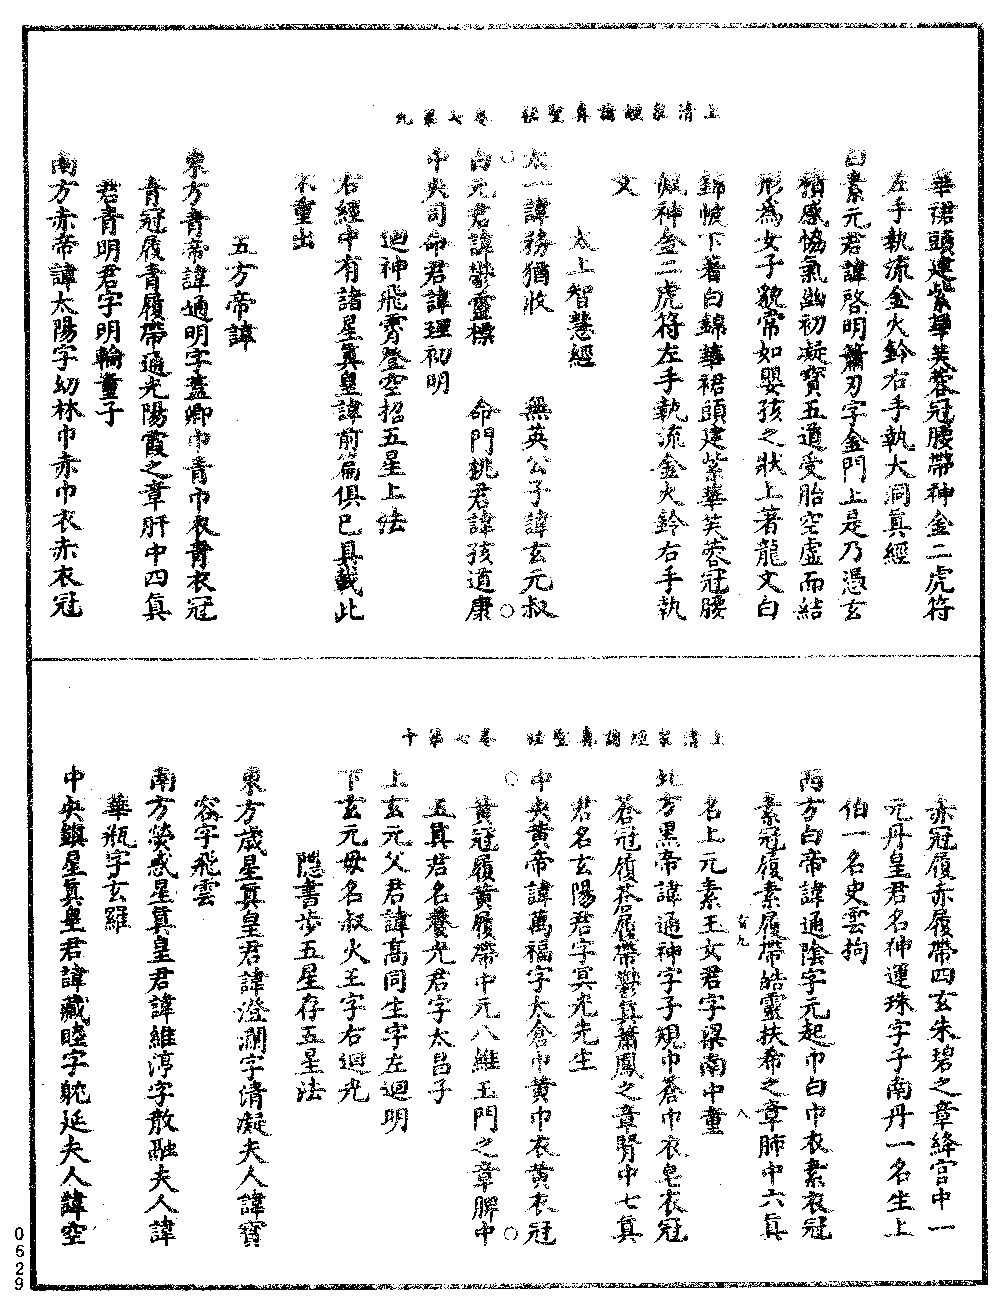 上清衆經諸真聖祕　卷七第九
華裙頭建紫華芙蓉冠腰帶神金二虎符
左手執流金火鈴右手執大洞真經
白素元君諱啓明蕭刃字金門上是乃憑玄
積感恊氣幽初凝寶五道受胎空虛而結
形為女子貌常如嬰孩之狀上著龍文白
錦帔下著白錦華裙頭建紫華芙蓉冠腰
佩神金二虎符左手執流金火鈴右手執
文
太上智慧經
太一諱務猶收　無英公子諱玄元叔
白元君諱鬱靈標　命門桃君諱孩道康
中央司命君諱理初明
迴神飛霄登空招五星上法
右經中有諸星真皇諱前篇俱已具載此
不重出
五方帝諱
東方青帝諱通明字蓋卿巾青巾衣青衣冠
青冠履青履帶通光陽霞之章肝中四真
君青明君字明輪童子
南方赤帝諱太陽字幼林巾赤巾衣赤衣冠
上清衆經諸真聖祕　卷七第十
赤冠履赤履帶四玄朱碧之章絳宮中一
元丹皇君名神運珠字子南丹一名生上
伯一名史雲拘
西方白帝諱通陰字元起巾白巾衣素衣冠
素冠履素履帶皓靈扶希之章肺中六真
名上元素王女君字梁南中童
北方黑帝諱通神字子規巾蒼巾衣皂衣冠
蒼冠履蒼履帶鬱真蕭鳳之章腎中七真
君名玄陽君字冥光先生
中央黃帝諱萬福字太倉巾黃巾衣黃衣冠
黃冠履黃履帶中元八維玉門之章脾中
五真君名養光君字太昌子
上玄元父君諱高同生字左迴明
下玄元母名叔火王字右迴光
隱書步五星存五星法
東方歲星真皇君諱澄瀾字清凝夫人諱寶
容字飛雲
南方熒惑星真皇君諱維渟字散融夫人諱
華瓶字玄羅
中央鎮星真皇君諱藏睦字躭延夫人諱空
0629